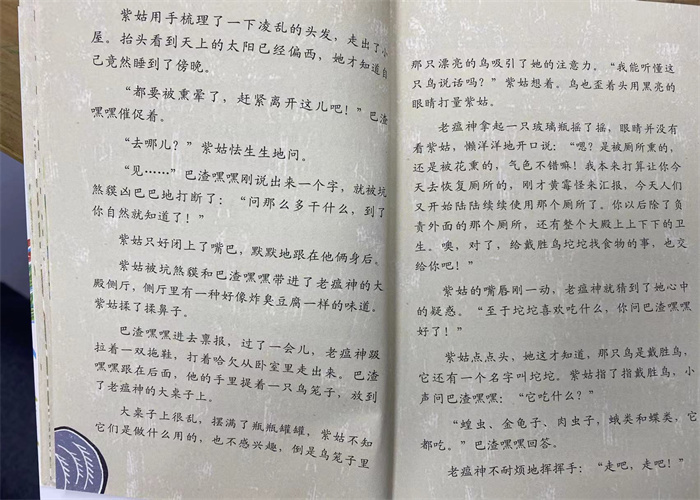 紫姑用手梳理了一下凌乱的头发，走出了小
屋。抬头看到天上的太阳已经偏西，她才知道自
己竟然睡到了傍晚。
“都要被熏晕了，赶紧离开这儿吧！”巴渣
嘿嘿催促着。
“去哪儿？”紫姑怯生生地问。
“见……”巴渣嘿嘿刚说出来一个字，就被坑
煞貘凶巴巴地打断了：“问那么多干什么，到了
你自然就知道了！”
紫姑只好闭上了嘴巴，默默地跟在他俩身后。
紫姑被坑煞貘和巴渣嘿嘿带进了老瘟神的大
殿侧厅，侧厅里有一种好像炸臭豆腐一样的味道。
紫姑揉了揉鼻子。
巴渣嘿嘿进去禀报，过了一会儿，老瘟神趿
拉着一双拖鞋，打着哈欠从卧室里走出来。巴渣
嘿嘿跟在后面，他的手里提着一只鸟笼子，放到
了老瘟神的大桌子上。
大桌子上很乱，摆满了瓶瓶罐罐，紫姑不知
它们是做什么用的，也不感兴趣，倒是鸟笼子里
那只漂亮的鸟吸引了她的注意力。“我能听懂这
只鸟说话吗？”紫姑想着。鸟也歪着头用黑亮的
眼睛打量紫姑。
老瘟神拿起一只玻璃瓶摇了摇，眼睛并没有
看紫姑，懒洋洋地开口说：“嗯？是被厕所熏的，
还是被花熏的，气色不错嘛！我本来打算让你今
天去恢复厕所的，刚才黄霉怪来汇报，今天人们
又开始陆陆续续使用那个厕所了。你以后除了负
责外面的那个厕所，还有整个大殿上上下下的卫
生。噢，对了，给戴胜鸟坨坨找食物的事，也交
给你吧！”
紫姑的嘴唇刚一动，老瘟神就猜到了她心中
的疑惑。“至于坨坨喜欢吃什么，你问巴渣嘿嘿
好了！”
紫姑点点头，她这才知道，那只鸟是戴胜鸟，
它还有一个名字叫坨坨。紫姑指了指戴胜鸟，小
声问巴渣嘿嘿：“它吃什么？”
“蝗虫、金龟子、肉虫子，蛾类和蝶类，它
都吃。”巴渣嘿嘿回答。
老瘟神不耐烦地挥挥手：“走吧，走吧！”